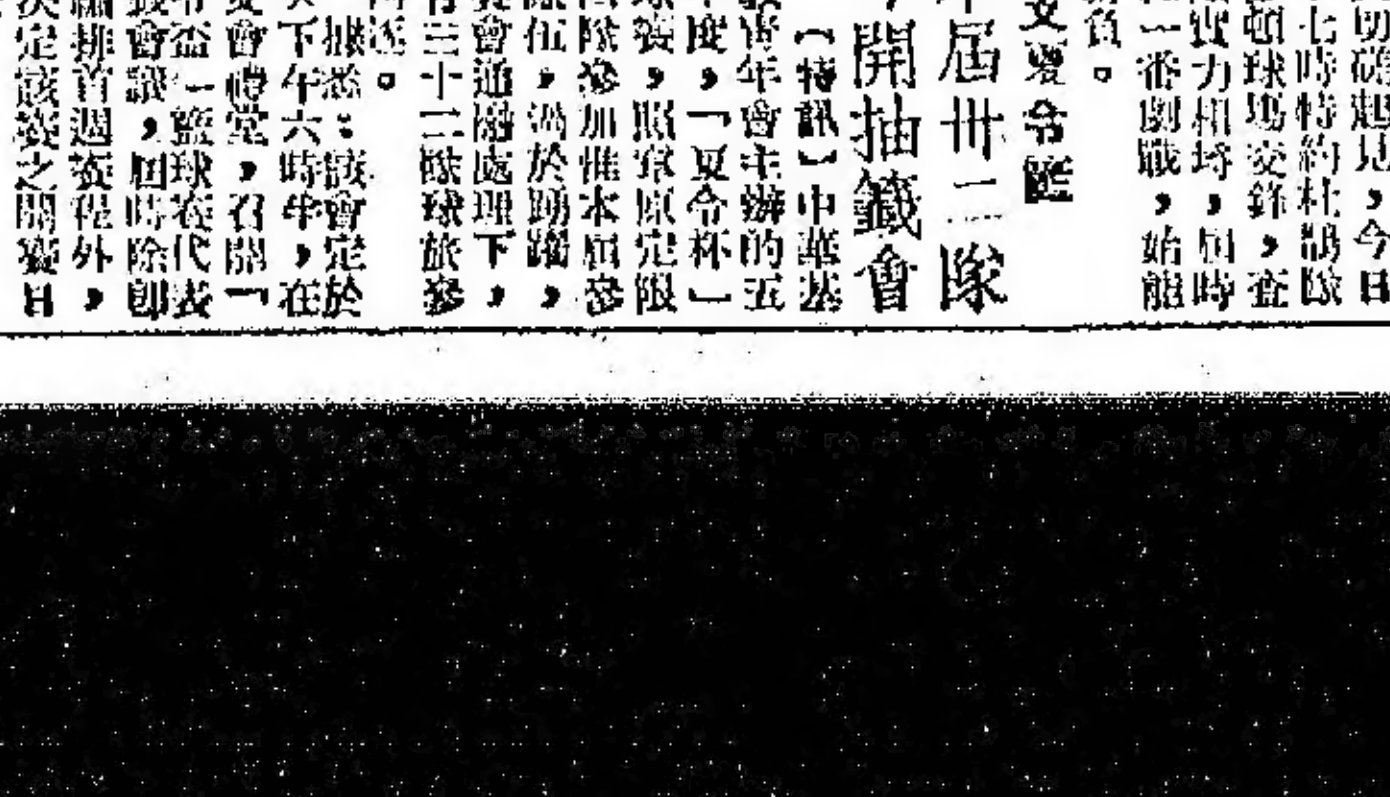 切磋起見，今日
七時特約杜鵑隊
頓球場交鋒，查
實力相埒，屆時
一番劇戰，始能
負。
女夏令籃
本屆卅二隊
開抽籤會
（特訊）中華基
青年會主辦的五
年度，「夏令杯」
賽，照章原定限
隊參加惟本屆參
隊伍，過於踴躍，
會通融處理下，
三十二隊球旅參
逐。
據悉：該會定於
下午六時半，在
會禮堂，召開「
盃」籃球賽代表
會議，屆時除即
編排首週賽程外，
決定該賽之開賽日